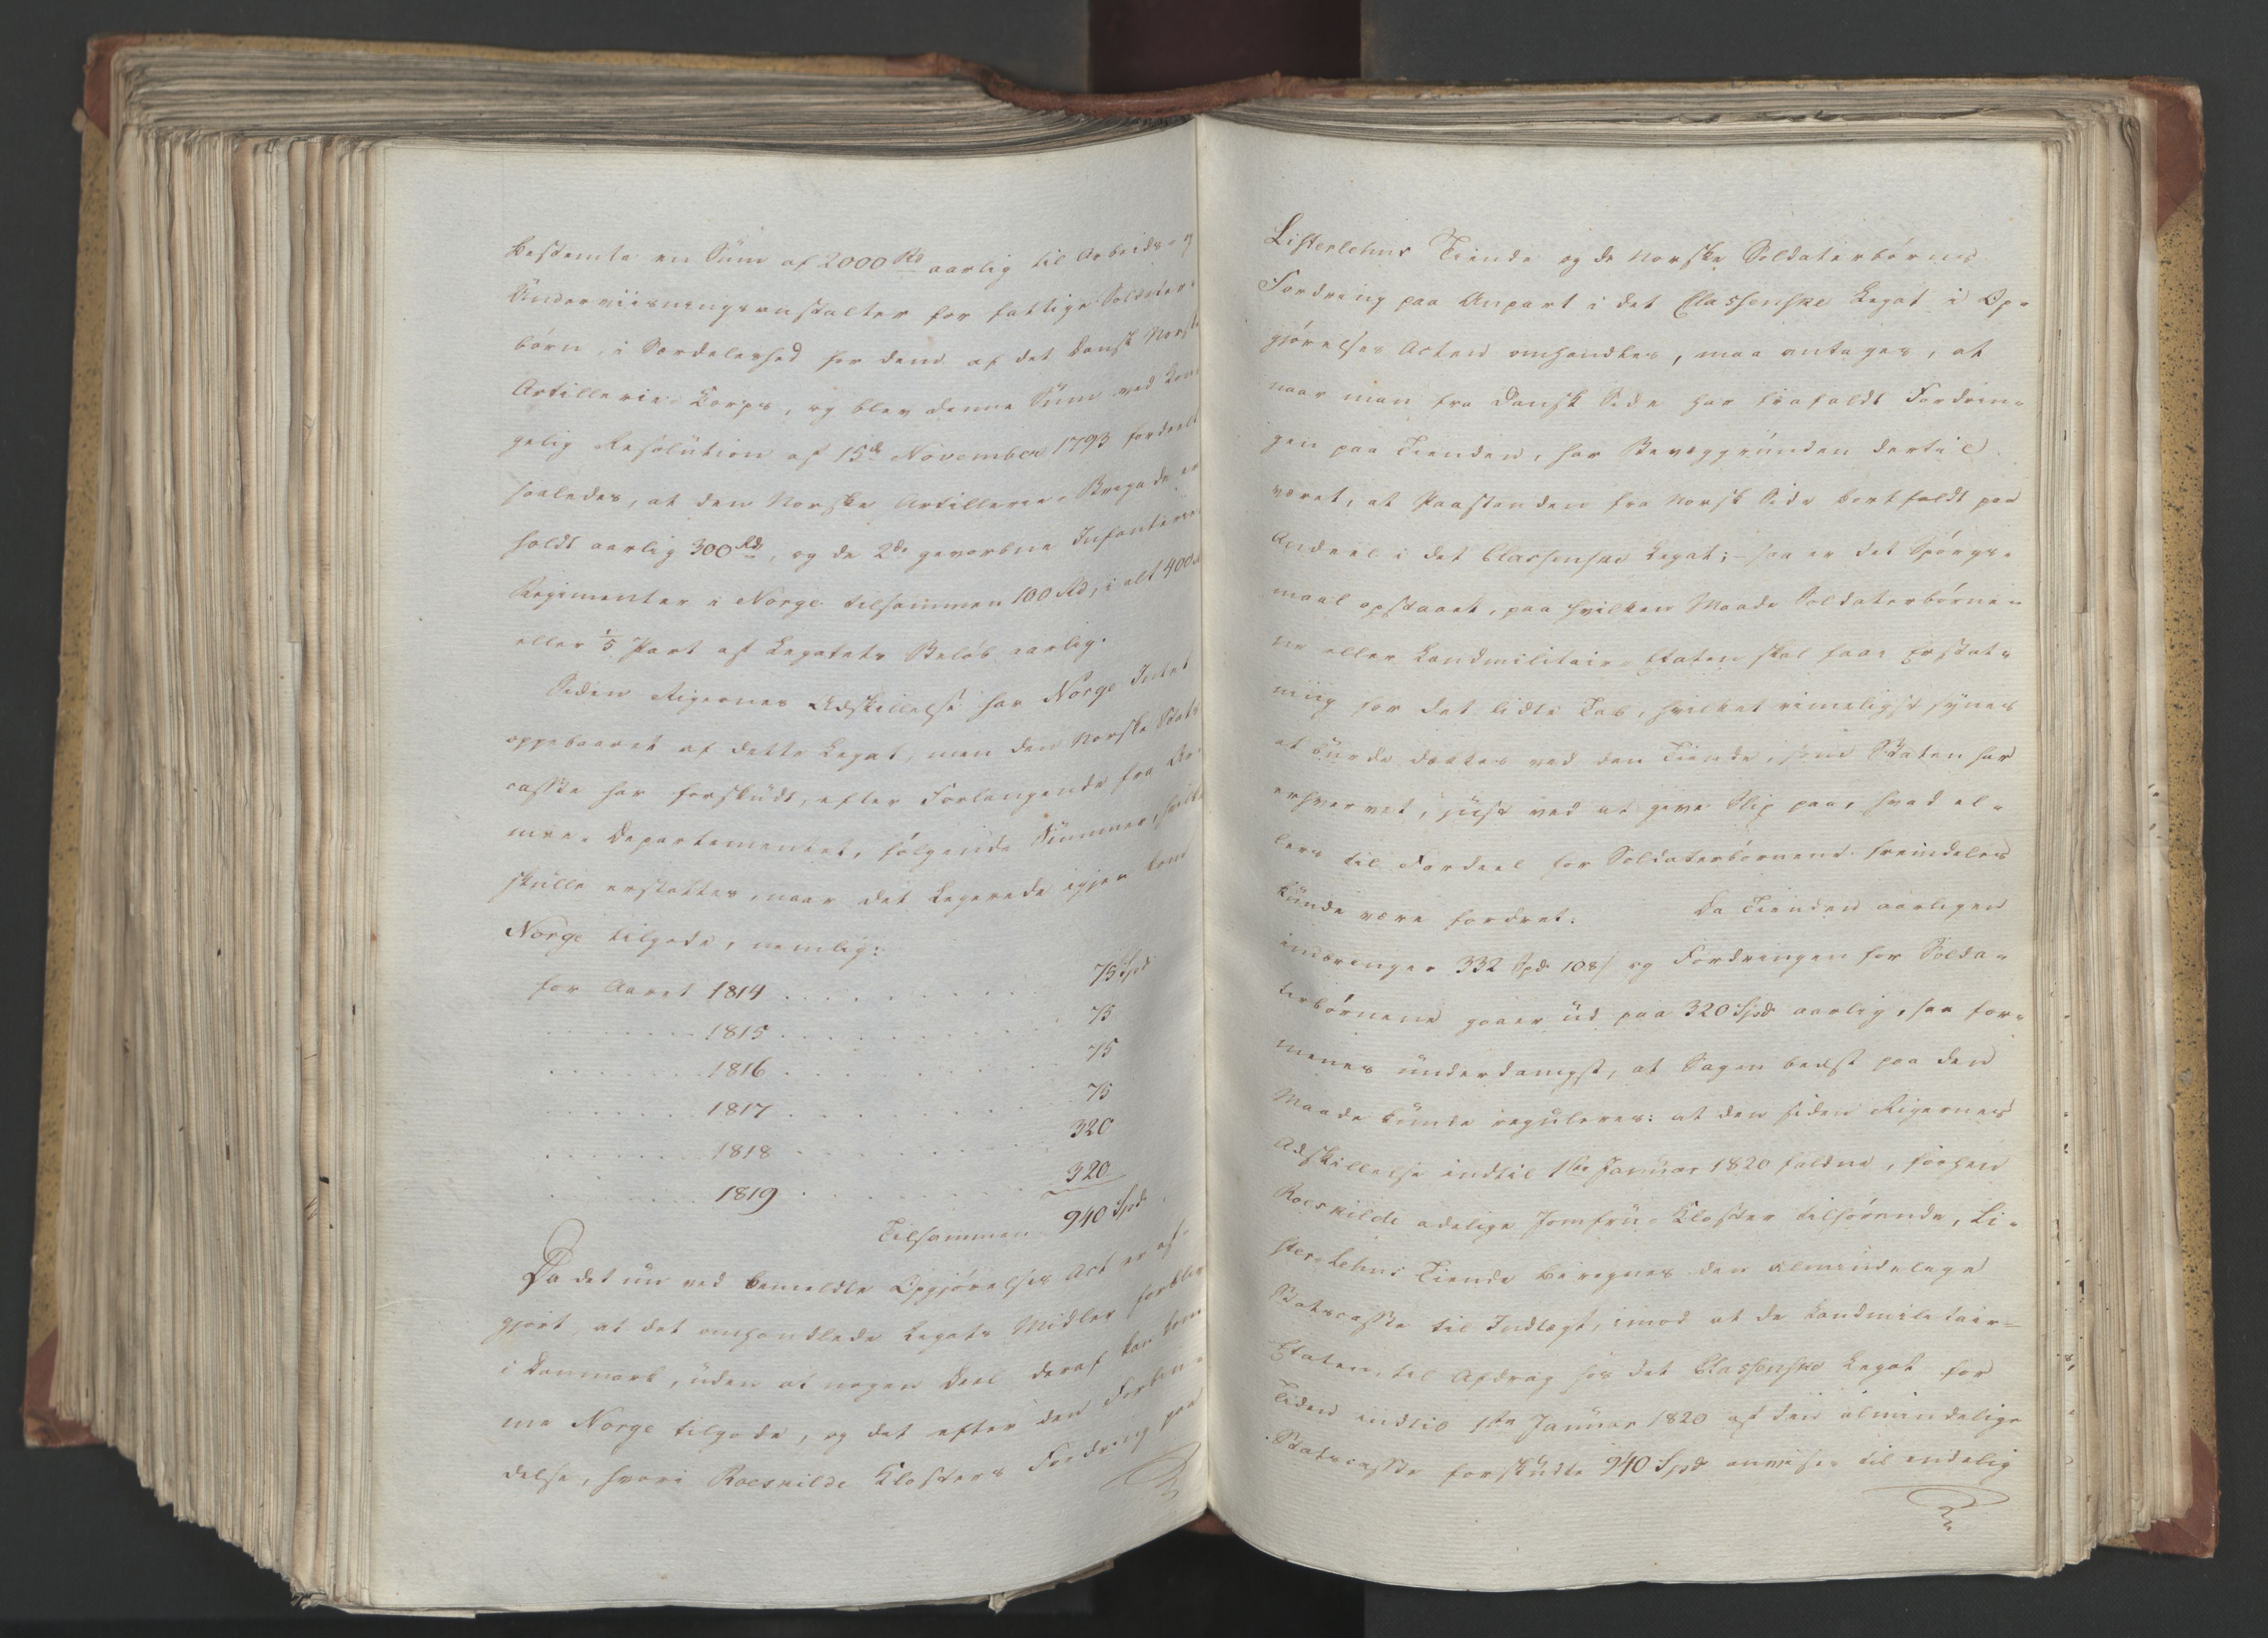 bestemte en Süm af 2000 Rd aarlig til Arbeids- og
Underviisningsanstalter for fattige Soldater-
børn, i Særdeleshed for dem af det dansk Norske
Artillerie-Korps, og blev denne Süm ved Kon-
gelig Resolution af 15de November 1793 fordeelt
saaledes, at den Norske Artillerie-Brigade er-
holdt aarlig 300 Rd, og de 2de gevorbne Infanterie
Regimenter i Norge tilsammen 100 Rd, i alt 400 Rd
eller 1/5 Part af Legatets Beløb aarlig.
Siden Rigernes Adskillelse har Norge Intet
oppebaaret af dette Legat, men den Norske Stats-
casse har forskudt, efter Forlangende fra Ar-
mee-Departementet, følgende Summer, som
skulle erstattes, naar det Legerede igjen kom
Norge tilgode, nemlig:
for Aaret 1814 . . . . . . . . . 75 Spd
. . . . . . . 1815 . . . . . . . . . 75
. . . . . . . 1816 . . . . . . . . . 75
. . . . . . . 1817 . . . . . . . . . 75
. . . . . . . 1818 . . . . . . . . . 320
. . . . . . . 1819 . . . . . . . . . 320
Tilsammen 940 Spd.
Da det nu ved bemeldte Opgjørelses Act er af-
gjort, at det omhandlede Legats Midler forblive
i Danmark, uden at nogen Deel deraf kan kom-
me Norge tilgode, og det efter den Forbin-
delse, hvori Roeskilde Klosters Fordring paa
Listerlehns Tiende og de Norske Soldaterbørns
Fordring paa Anpart i det Classenske Legat i Op-
gjørelses Acten omhandles, maa antages, at
naar man fra Dansk Side har frafaldt Fordrin-
gen paa Tienden, har Bevæggrunden dertil
været, at Paastanden fra Norsk Side bortfaldt paa
Andeel i det Classenske Legat; saa er det Spørgs-
maal opstaaet, paa hvilken Maade Soldaterbørne-
ne eller Landmilitair-Etaten skal faae Erstat-
ning for det lidte Tab, hvilket rimeligst synes
at burde dækkes ved den Tiende, som Staten har
erhvervet, just ved at give Slip paa, hvad el-
lers til Fordeel for Soldaterbørnene fremdeles
kunde være fordret. Da Tienden aarligen
indbringer 332 Spd 108 s og Fordringen for Solda-
terbørnene gaaer ud paa 320 Spd aarlig, saa for-
menes underdanigst, at Sagen bedst paa den
Maade kunde reguleres: at den siden Rigernes
Adskillelse indtil 1ste Januar 1820 faldne, forhen
Roeskilde adelige Jomfru-Kloster tilhørende, Li-
ster-Lehns Tiende beregnes den almindelige
Statscasse til Indtægt, imod at de Landmilitair-
Etaten, til Afdrag hos det Classenske Legat for
Tiden indtil 1ste Januar 1820 af den almindelige
Statscasse forskudte 940 Spd anvises til endelig